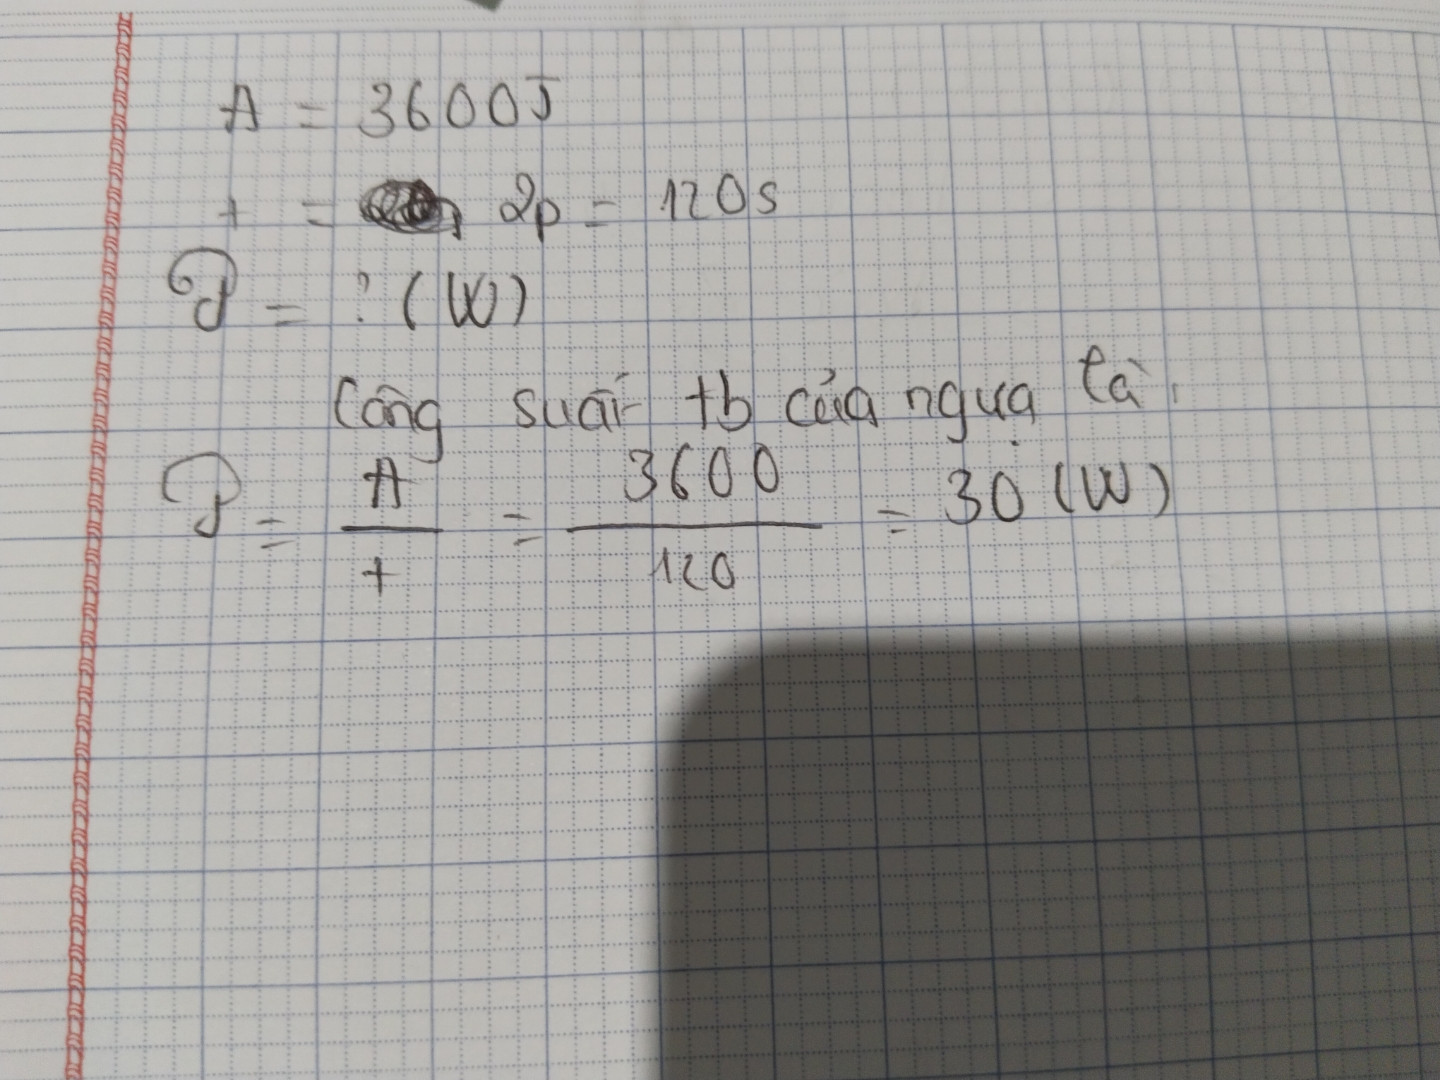 A = 3600J
t = 2p = 120s
P = ? (W)
Công suất tb của ngựa là:
P = A / t = 3600 / 120 = 30 (W)